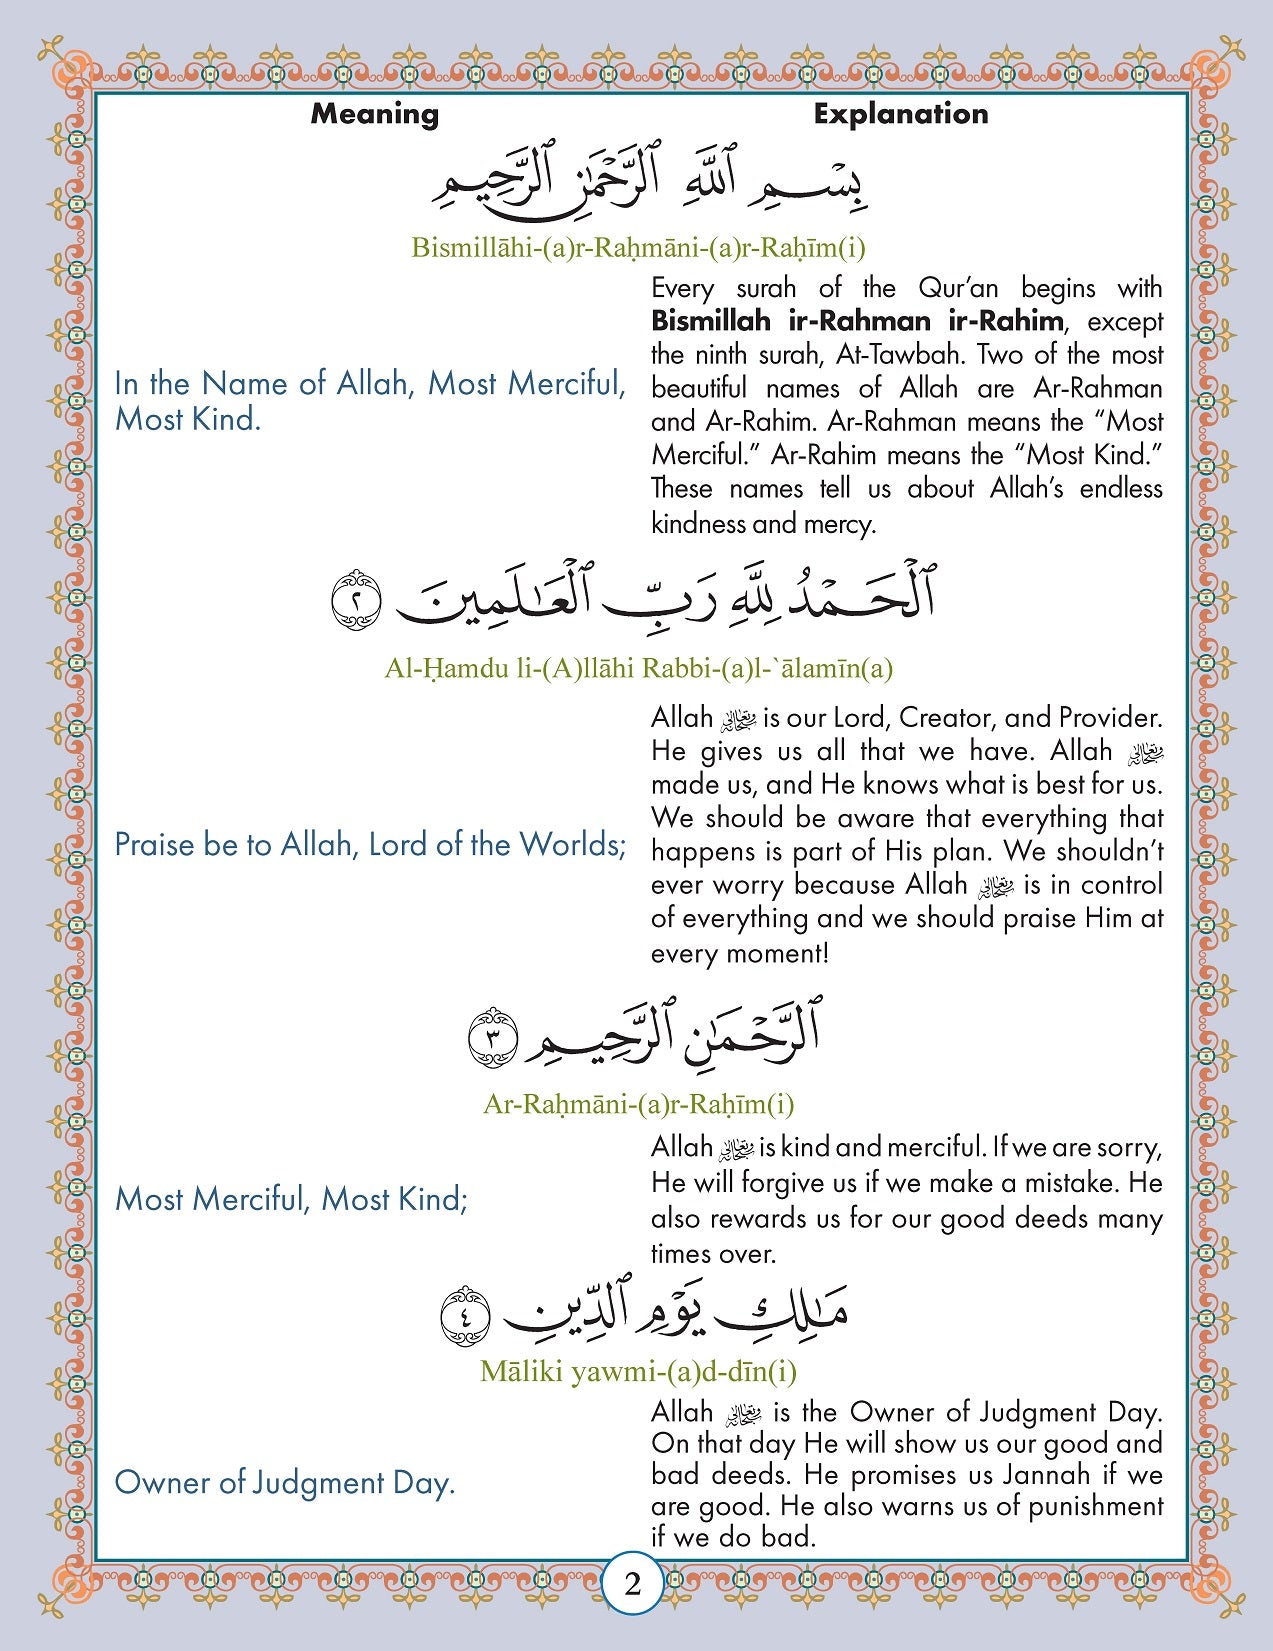 Meaning Explanation
بِسْمِ ٱللَّهِ ٱلرَّحْمَٰنِ ٱلرَّحِيمِ
Bismillāhi-(a)r-Raḥmāni-(a)r-Raḥīm(i)
In the Name of Allah, Most Merciful,
Most Kind.
Every surah of the Qur’an begins with
Bismillah ir-Rahman ir-Rahim, except
the ninth surah, At-Tawbah. Two of the most
beautiful names of Allah are Ar-Rahman
and Ar-Rahim. Ar-Rahman means the “Most
Merciful.” Ar-Rahim means the “Most Kind.”
These names tell us about Allah’s endless
kindness and mercy.
ٱلْحَمْدُ لِلَّهِ رَبِّ ٱلْعَٰلَمِينَ ٢
Al-Ḥamdu li-(A)llāhi Rabbi-(a)l-`ālamīn(a)
Praise be to Allah, Lord of the Worlds;
Allah سبحانه وتعالى is our Lord, Creator, and Provider.
He gives us all that we have. Allah سبحانه وتعالى
made us, and He knows what is best for us.
We should be aware that everything that
happens is part of His plan. We shouldn’t
ever worry because Allah سبحانه وتعالى is in control
of everything and we should praise Him at
every moment!
ٱلرَّحْمَٰنِ ٱلرَّحِيمِ ٣
Ar-Raḥmāni-(a)r-Raḥīm(i)
Most Merciful, Most Kind;
Allah سبحانه وتعالى is kind and merciful. If we are sorry,
He will forgive us if we make a mistake. He
also rewards us for our good deeds many
times over.
مَٰلِكِ يَوْمِ ٱلدِّينِ ٤
Māliki yawmi-(a)d-dīn(i)
Owner of Judgment Day.
Allah سبحانه وتعالى is the Owner of Judgment Day.
On that day He will show us our good and
bad deeds. He promises us Jannah if we
are good. He also warns us of punishment
if we do bad.
2